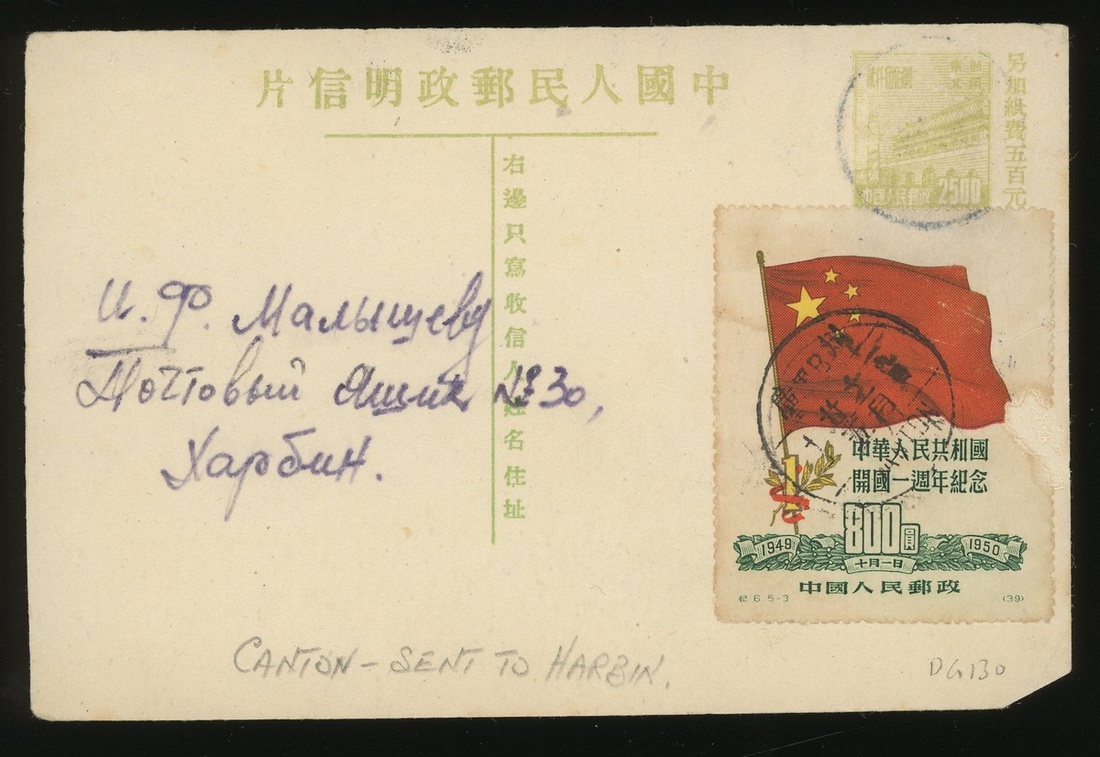 中國人民郵政明信片
另加紙費五百元
中國人民郵政 2500
右邊只寫收信人姓名住址
И. Ф. Малышеву
Почтовый Ящик №30,
Харбин.
中華人民共和國
開國一週年紀念
800圓
1949 1950
十月一日
中國人民郵政
紀 6.5-3 (39)
CANTON - SENT TO HARBIN.
DG130